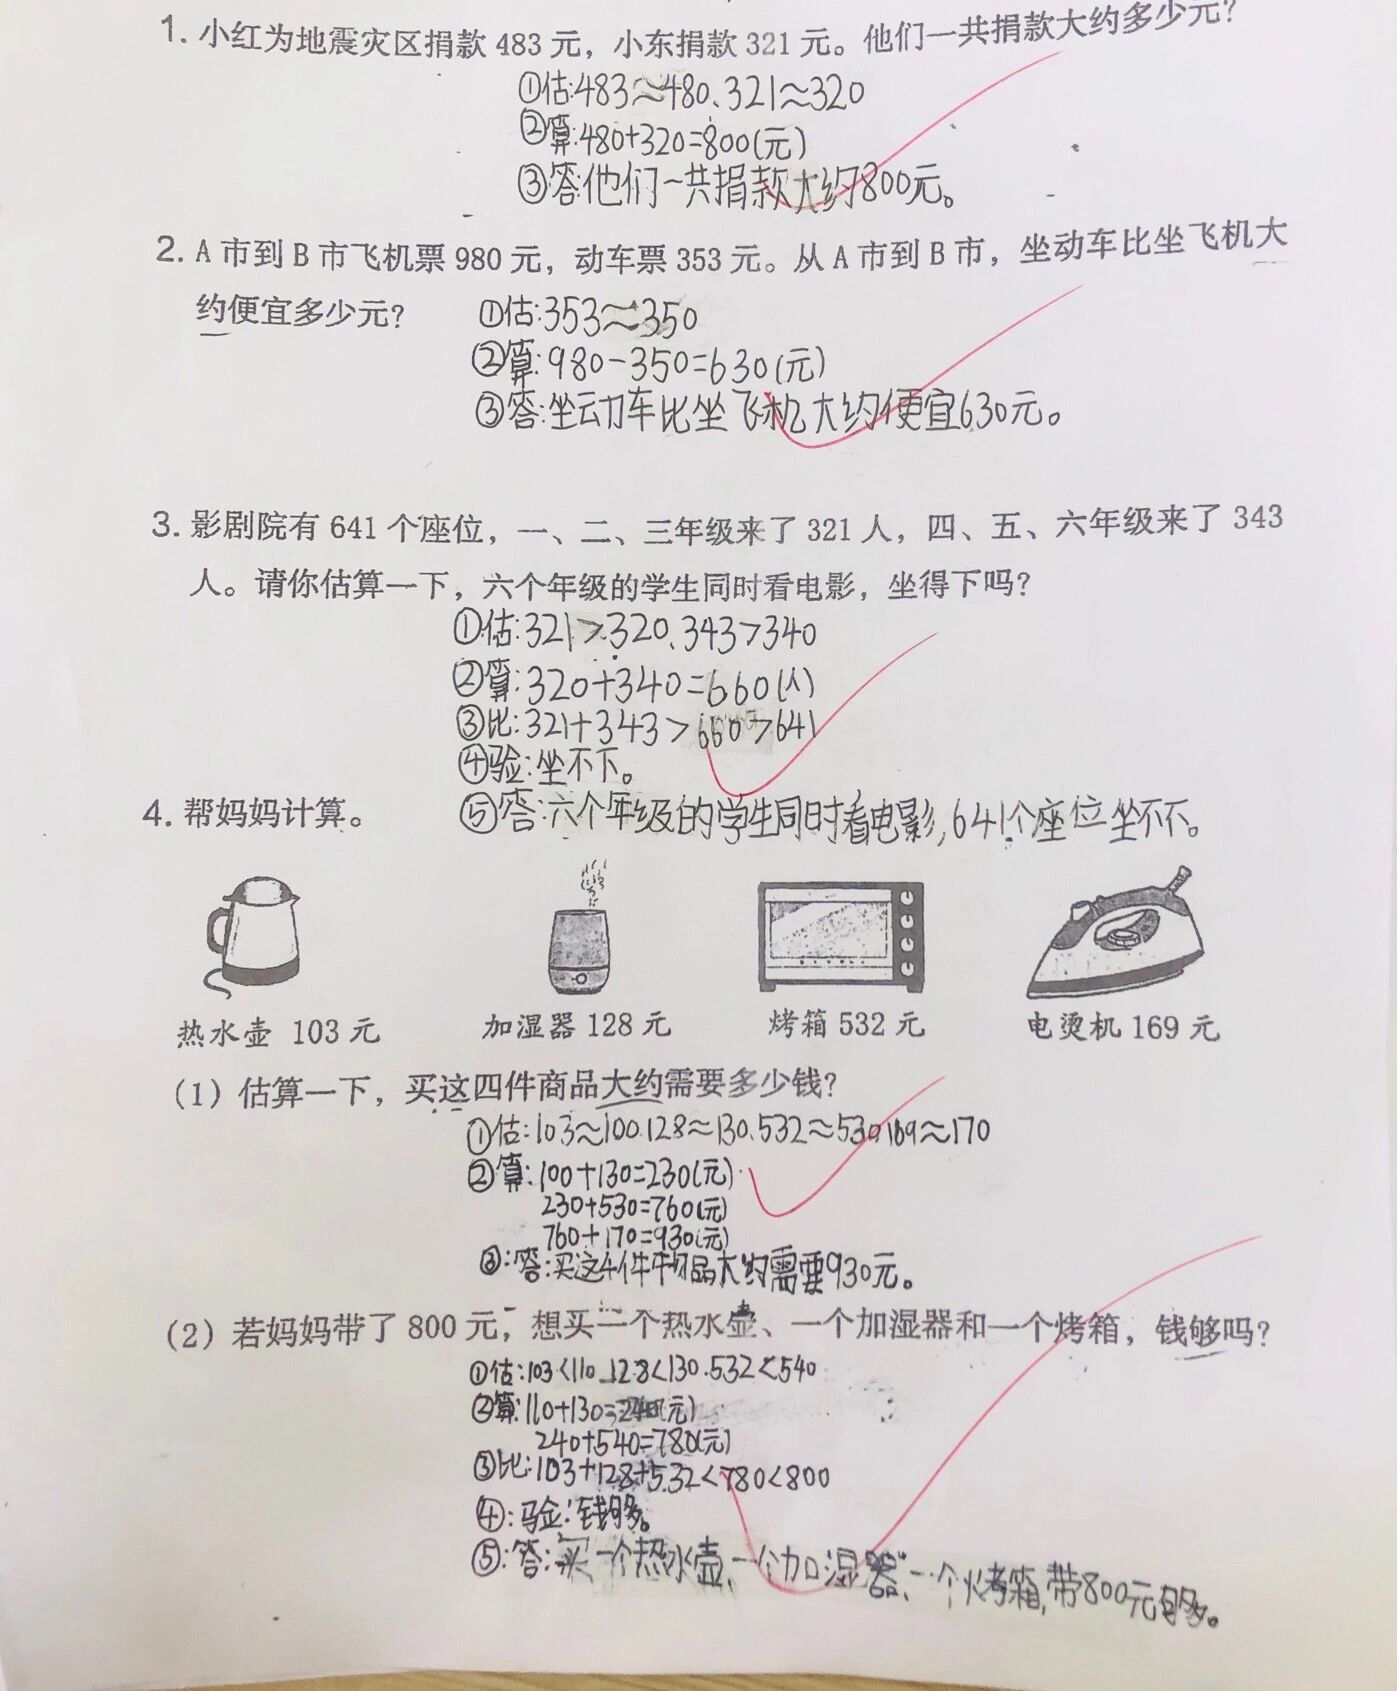 1. 小红为地震灾区捐款 483 元，小东捐款 321 元。他们一共捐款大约多少元？
①估:483≈480、321≈320
②算:480+320=800(元)
③答:他们一共捐款大约800元。
2. A 市到 B 市飞机票 980 元，动车票 353 元。从 A 市到 B 市，坐动车比坐飞机大
约便宜多少元？
①估:353≈350
②算:980-350=630(元)
③答:坐动车比坐飞机大约便宜630元。
3. 影剧院有 641 个座位，一、二、三年级来了 321 人，四、五、六年级来了 343
人。请你估算一下，六个年级的学生同时看电影，坐得下吗？
①估:321>320、343>340
②算:320+340=660(人)
③比:321+343>660>641
④验:坐不下。
⑤答:六个年级的学生同时看电影,641个座位坐不下。
4. 帮妈妈计算。
热水壶 103 元
加湿器 128 元
烤箱 532 元
电烫机 169 元
（1）估算一下，买这四件商品大约需要多少钱？
①估:103≈100.128≈130、532≈530.169≈170
②算:100+130=230(元)
230+530=760(元)
760+170=930(元)
③:答:买这4件商品大约需要930元。
（2）若妈妈带了 800 元，想买一个热水壶、一个加湿器和一个烤箱，钱够吗？
①估:103<110.128<130.532<540
②算:110+130=240(元)
240+540=780(元)
③比:103+128+532<780<800
④:验:钱够。
⑤:答:买一个热水壶、一个加湿器、一个烤箱,带800元够。